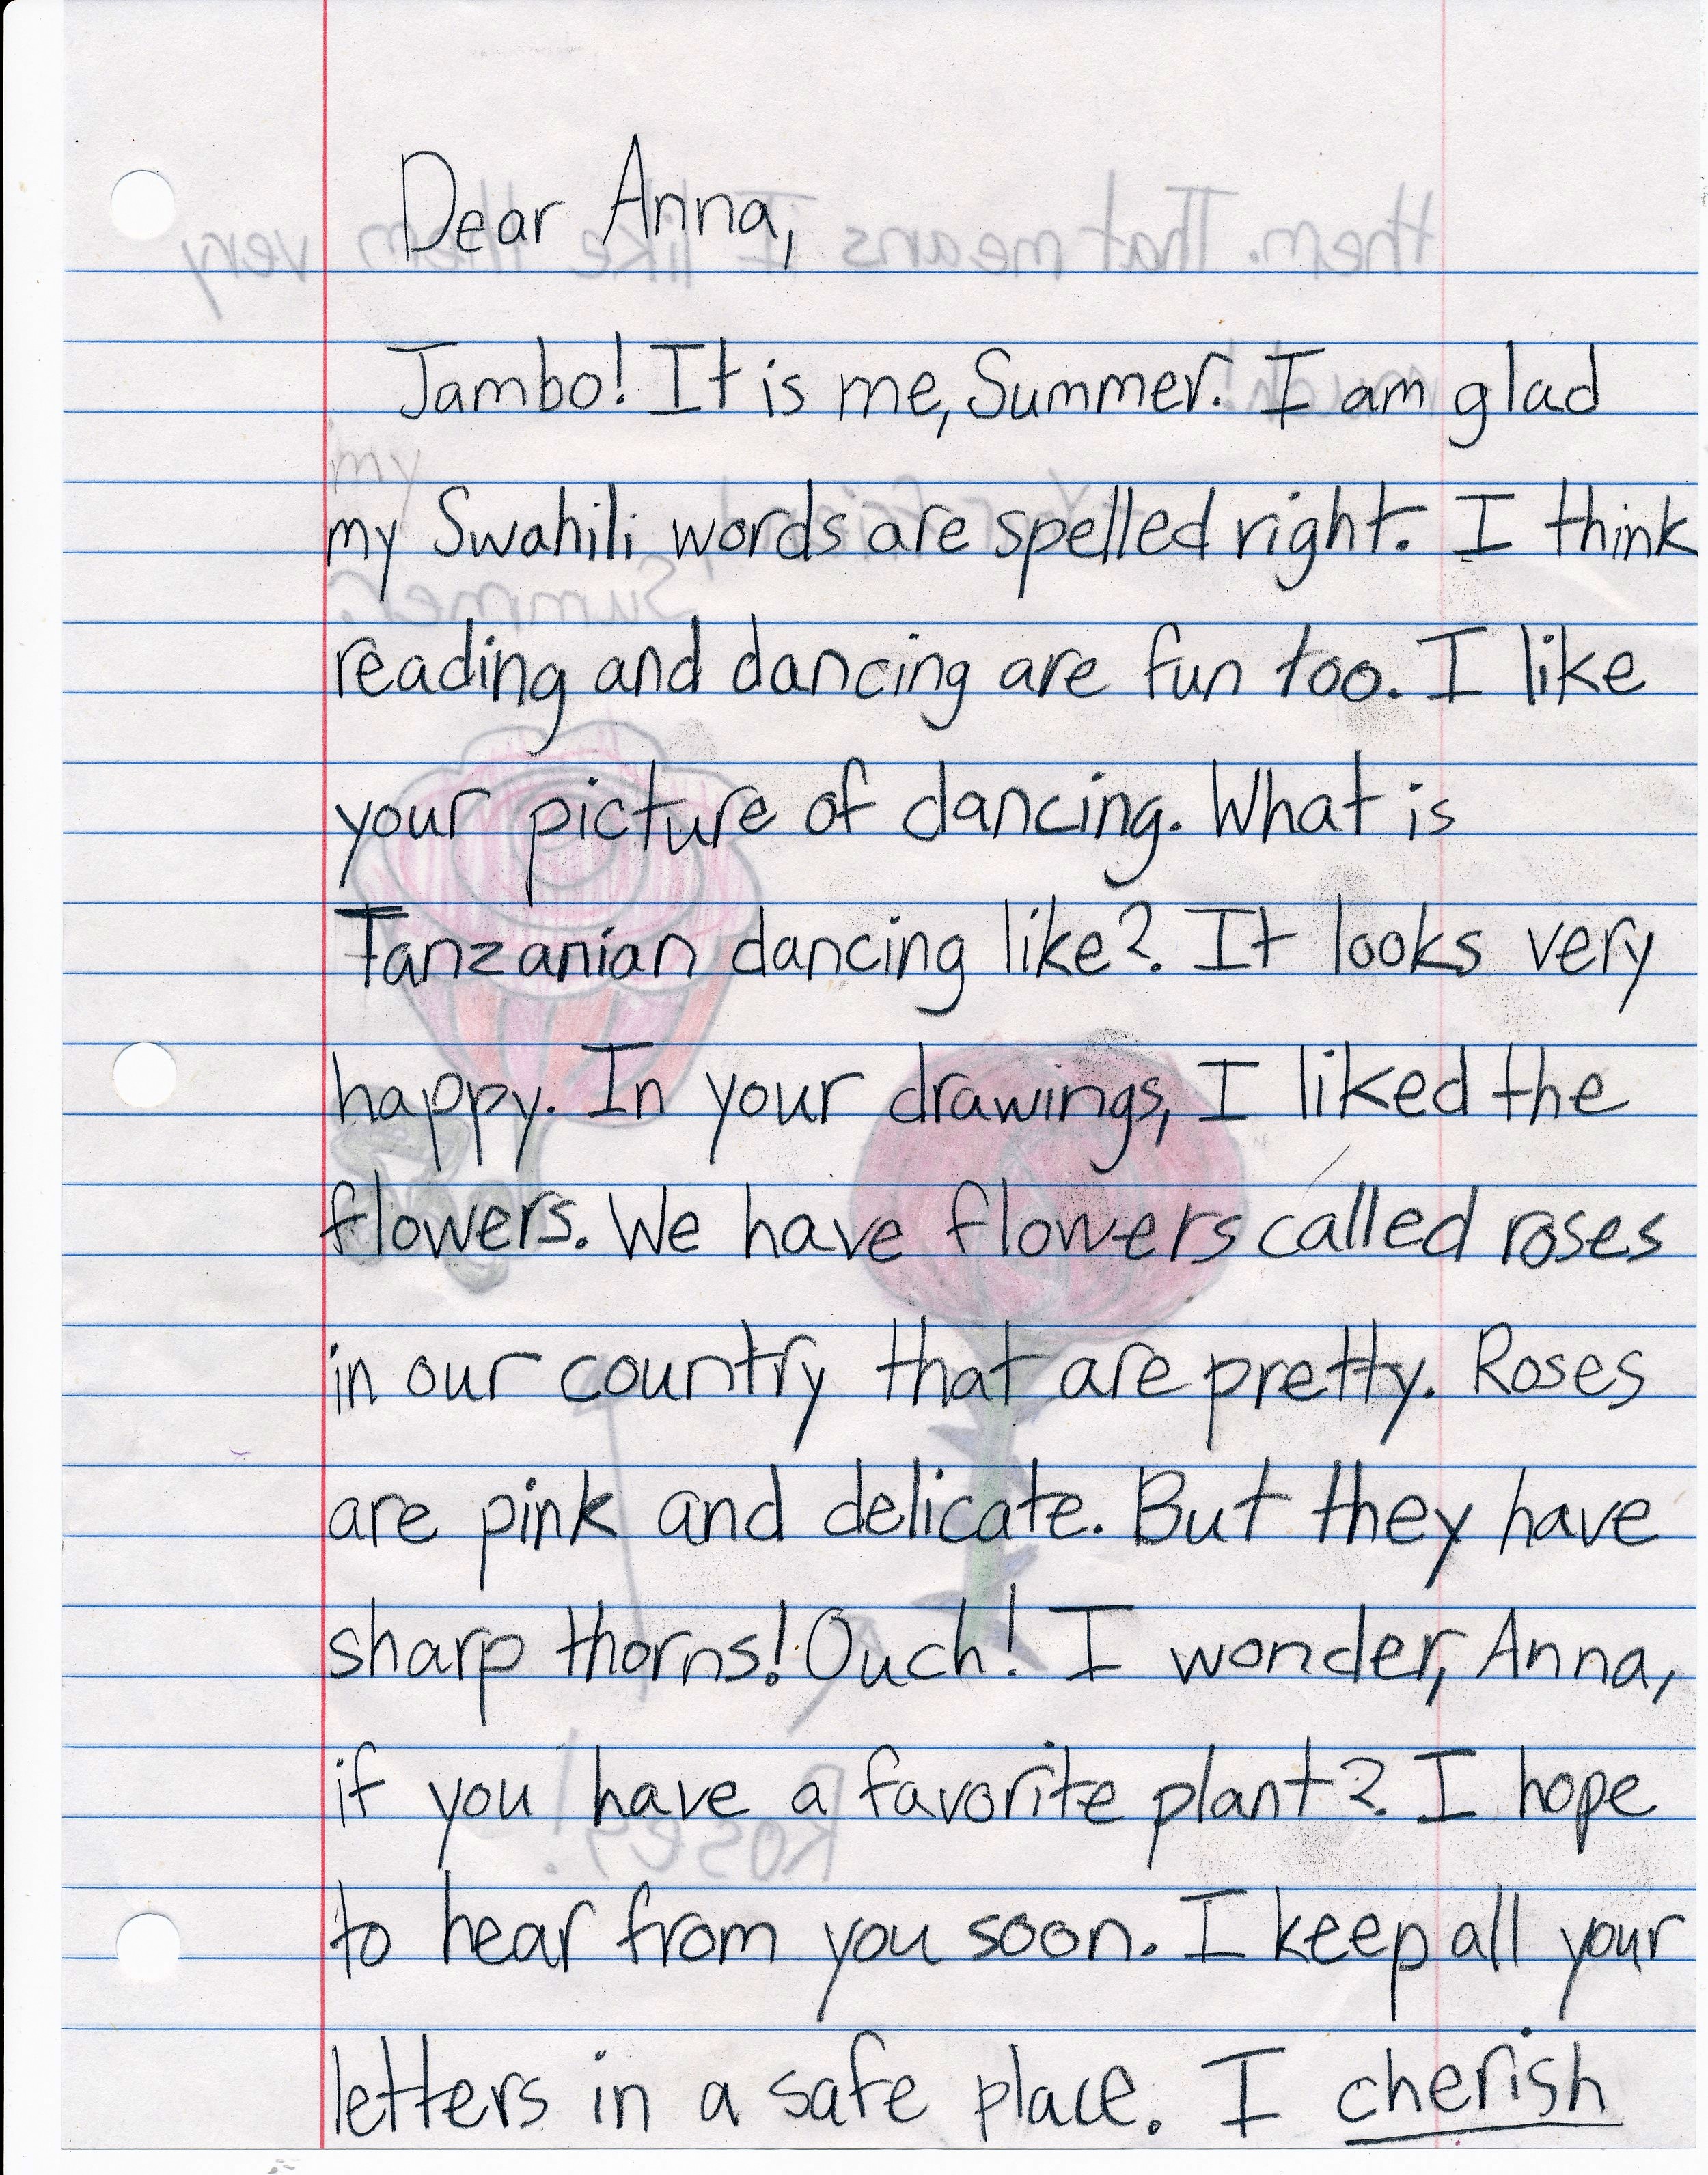 Dear Anna,
Jambo! It is me, Summer! I am glad
my Swahili words are spelled right. I think
reading and dancing are fun too. I like
your picture of dancing. What is
Tanzanian dancing like? It looks very
happy. In your drawings, I liked the
flowers. We have flowers called roses
in our country that are pretty. Roses
are pink and delicate. But they have
sharp thorns! Ouch! I wonder, Anna,
if you have a favorite plant? I hope
to hear from you soon. I keep all your
letters in a safe place. I cherish
them. That means I like them very
much!
Your friend,
my
Summer.
Roses!